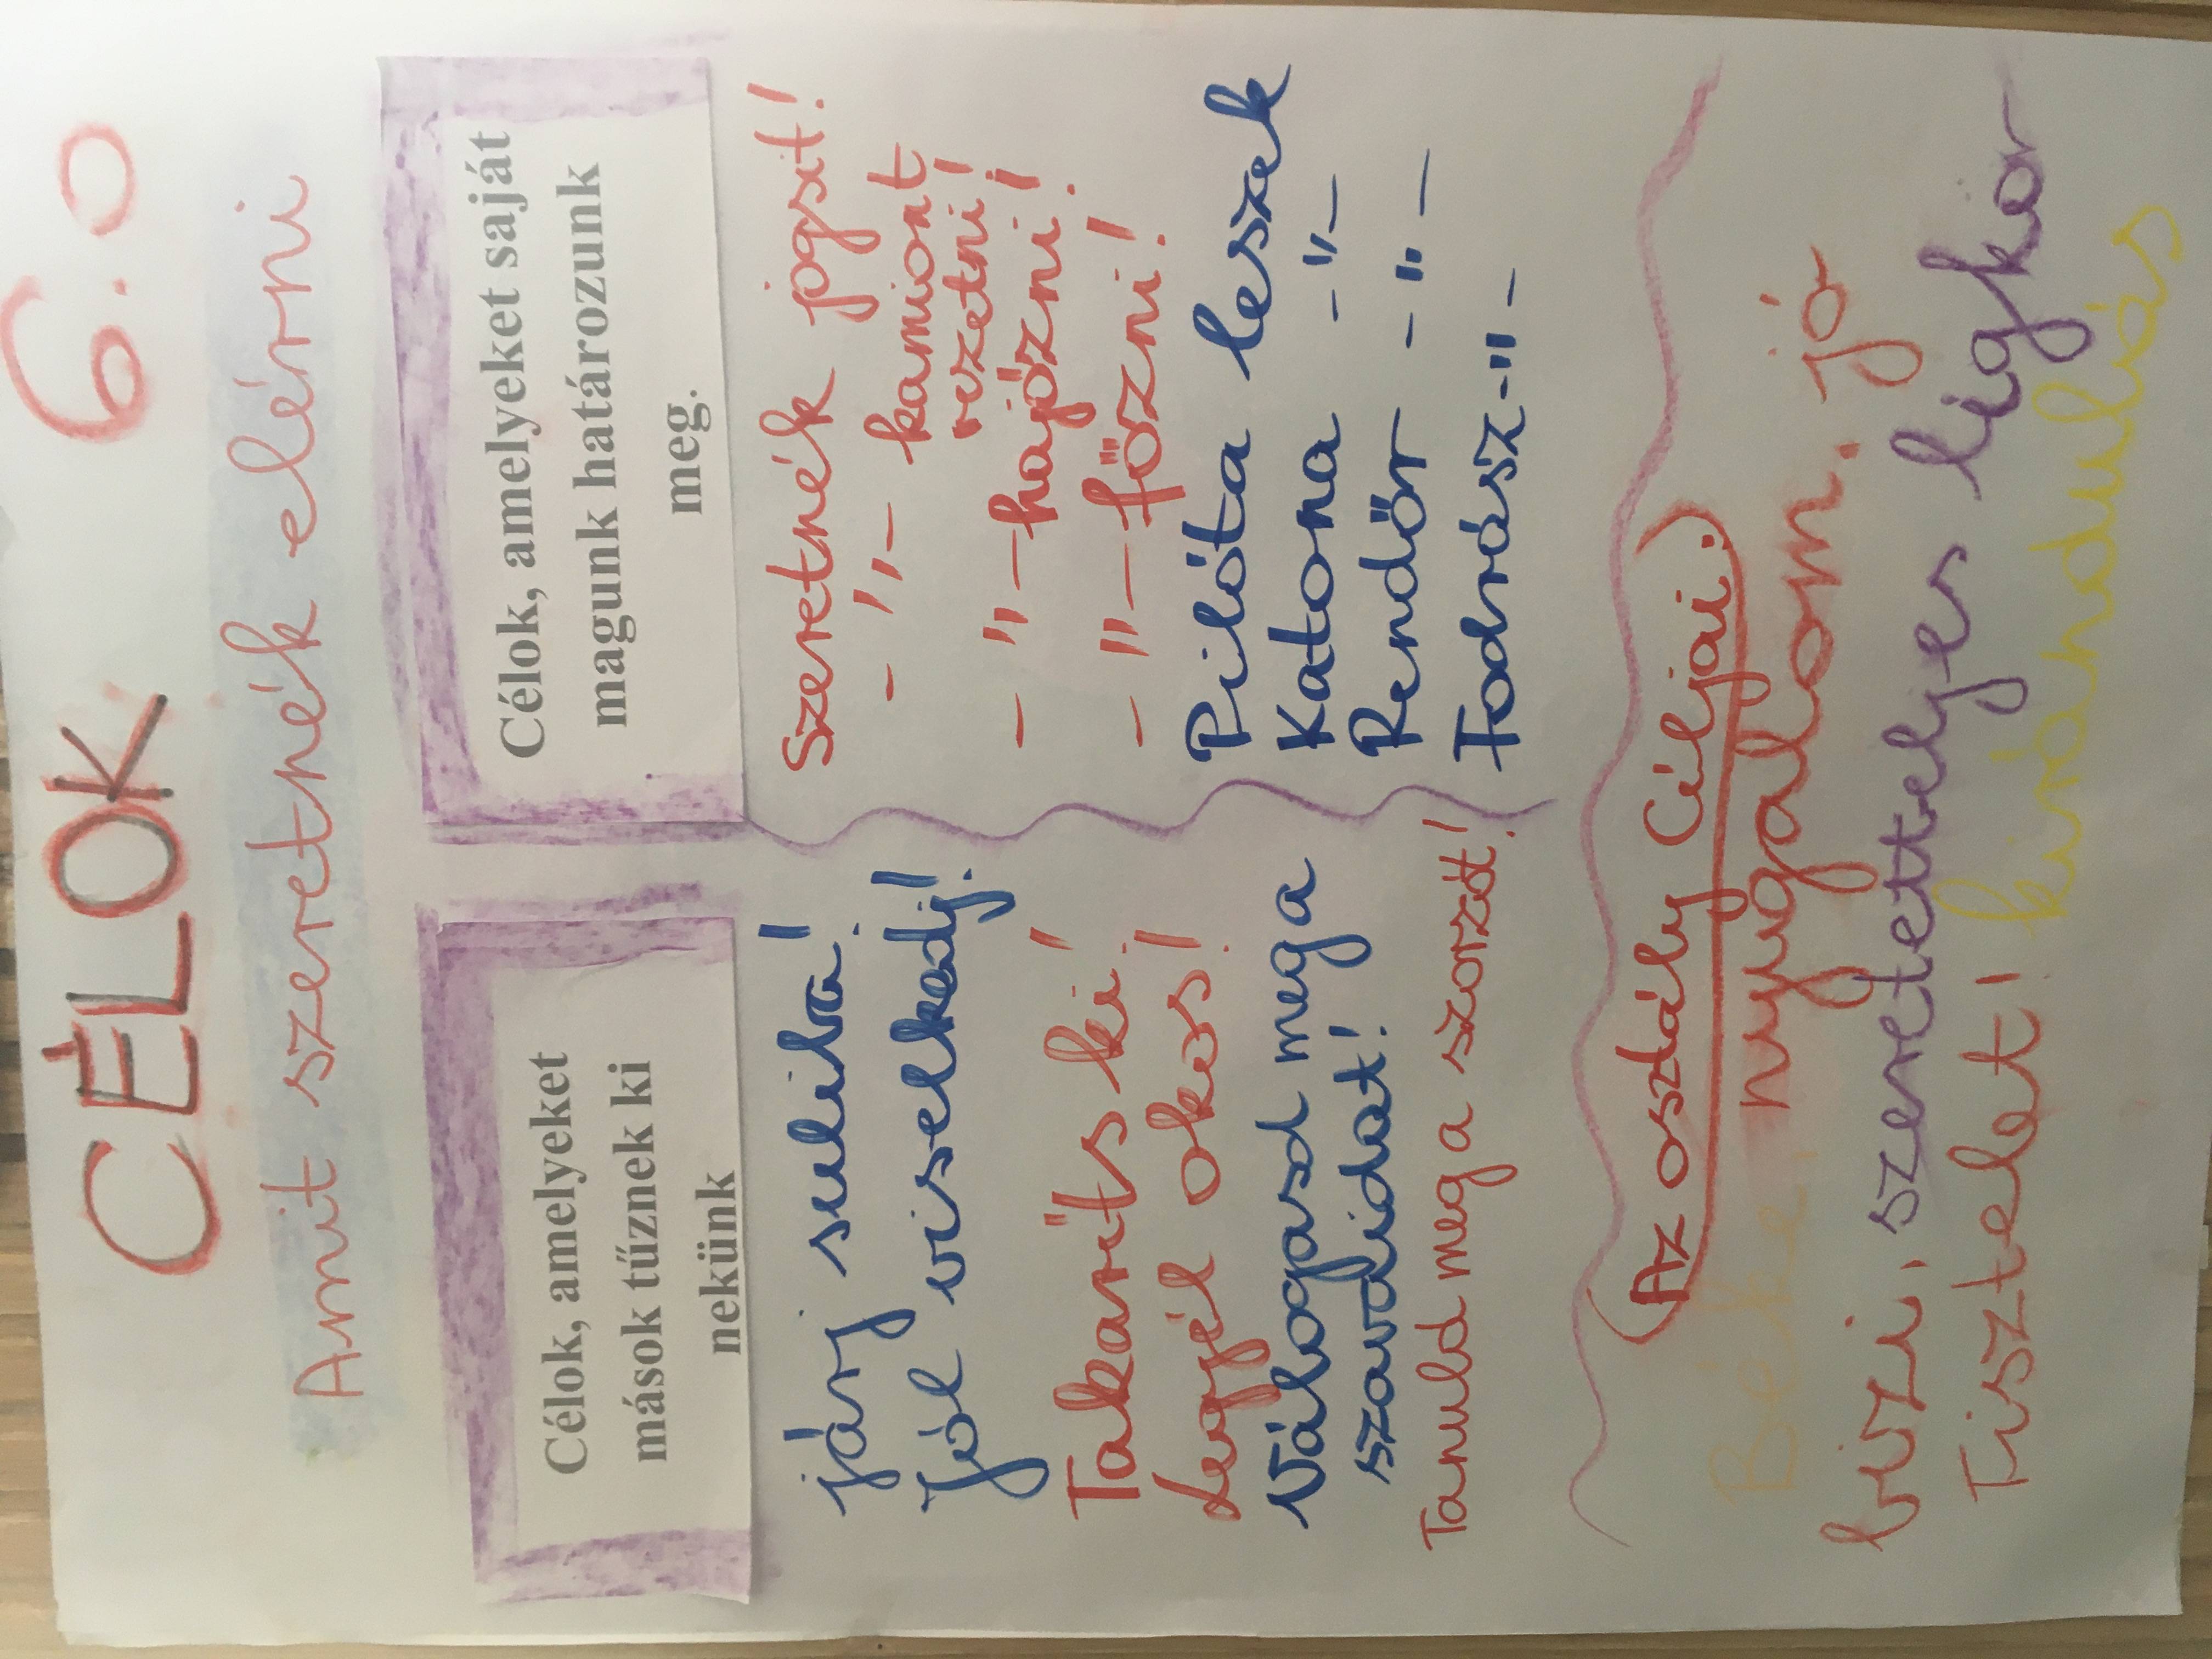 CÉLOK 6.0
Amit szeretnék elérni
Célok, amelyeket
mások tűznek ki
nekünk
járj suliba!
Jól viselkedj!
Takaríts ki!
Legyél okos!
Válogasd meg a
szavaidat!
Tanuld meg a szorzót!
Célok, amelyeket saját
magunk határozunk
meg.
Szeretnék jogsit!
- " - kamiont
vezetni!
- " - hajózni!
- " - főzni!
Pilóta leszek
Katona - " -
Rendőr - " -
Fodrász - " -
Az osztály Céljai.
Béke, nyugalom, jó
bizi, szeretetteljes légkör
Tisztelet! kirándulás